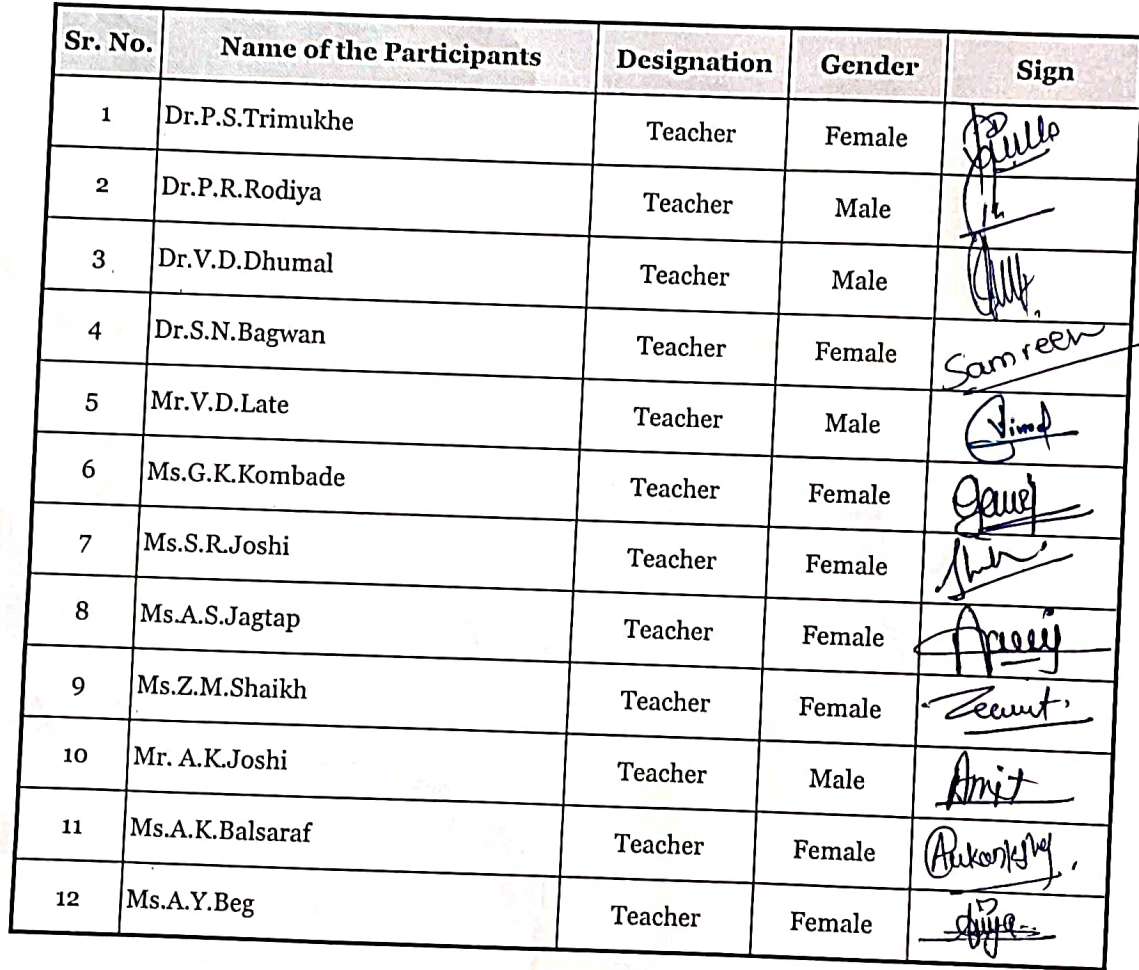 Sr. No. Name of the Participants Designation Gender Sign
1 Dr.P.S.Trimukhe Teacher Female
2 Dr.P.R.Rodiya Teacher Male
3 Dr.V.D.Dhumal Teacher Male
4 Dr.S.N.Bagwan Teacher Female Samreen
5 Mr.V.D.Late Teacher Male
6 Ms.G.K.Kombade Teacher Female
7 Ms.S.R.Joshi Teacher Female
8 Ms.A.S.Jagtap Teacher Female
9 Ms.Z.M.Shaikh Teacher Female
10 Mr. A.K.Joshi Teacher Male Amit
11 Ms.A.K.Balsaraf Teacher Female
12 Ms.A.Y.Beg Teacher Female